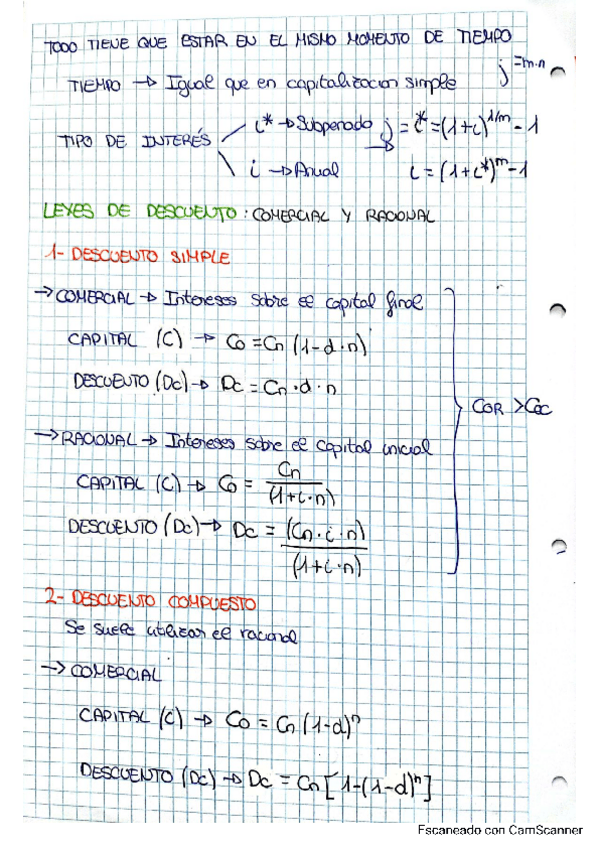 TODO TIENE QUE ESTAR EN EL MISMO MOMENTO DE TIEMPO
TIEMPO → Igual que en capitalizacion simple j=m·n
TIPO DE INTERÉS
i* → Subperiodo j = i* = (1+i)^1/m - 1
i → Anual i = (1+i*)^m - 1
LEYES DE DESCUENTO: COMERCIAL Y RACIONAL
1- DESCUENTO SIMPLE
→ COMERCIAL → Intereses sobre el capital final
CAPITAL (C) → Co = Cn (1-d·n)
DESCUENTO (Dc) → Dc = Cn·d·n
COR > Coc
→ RACIONAL → Intereses sobre el capital inicial
CAPITAL (C) → Co = Cn / (1+i·n)
DESCUENTO (Dc) → Dc = (Cn·i·n) / (1+i·n)
2- DESCUENTO COMPUESTO
Se suele utilizar el racional
→ COMERCIAL
CAPITAL (C) → Co = Cn (1-d)^n
DESCUENTO (Dc) → Dc = Cn [1-(1-d)^n]
Escaneado con CamScanner